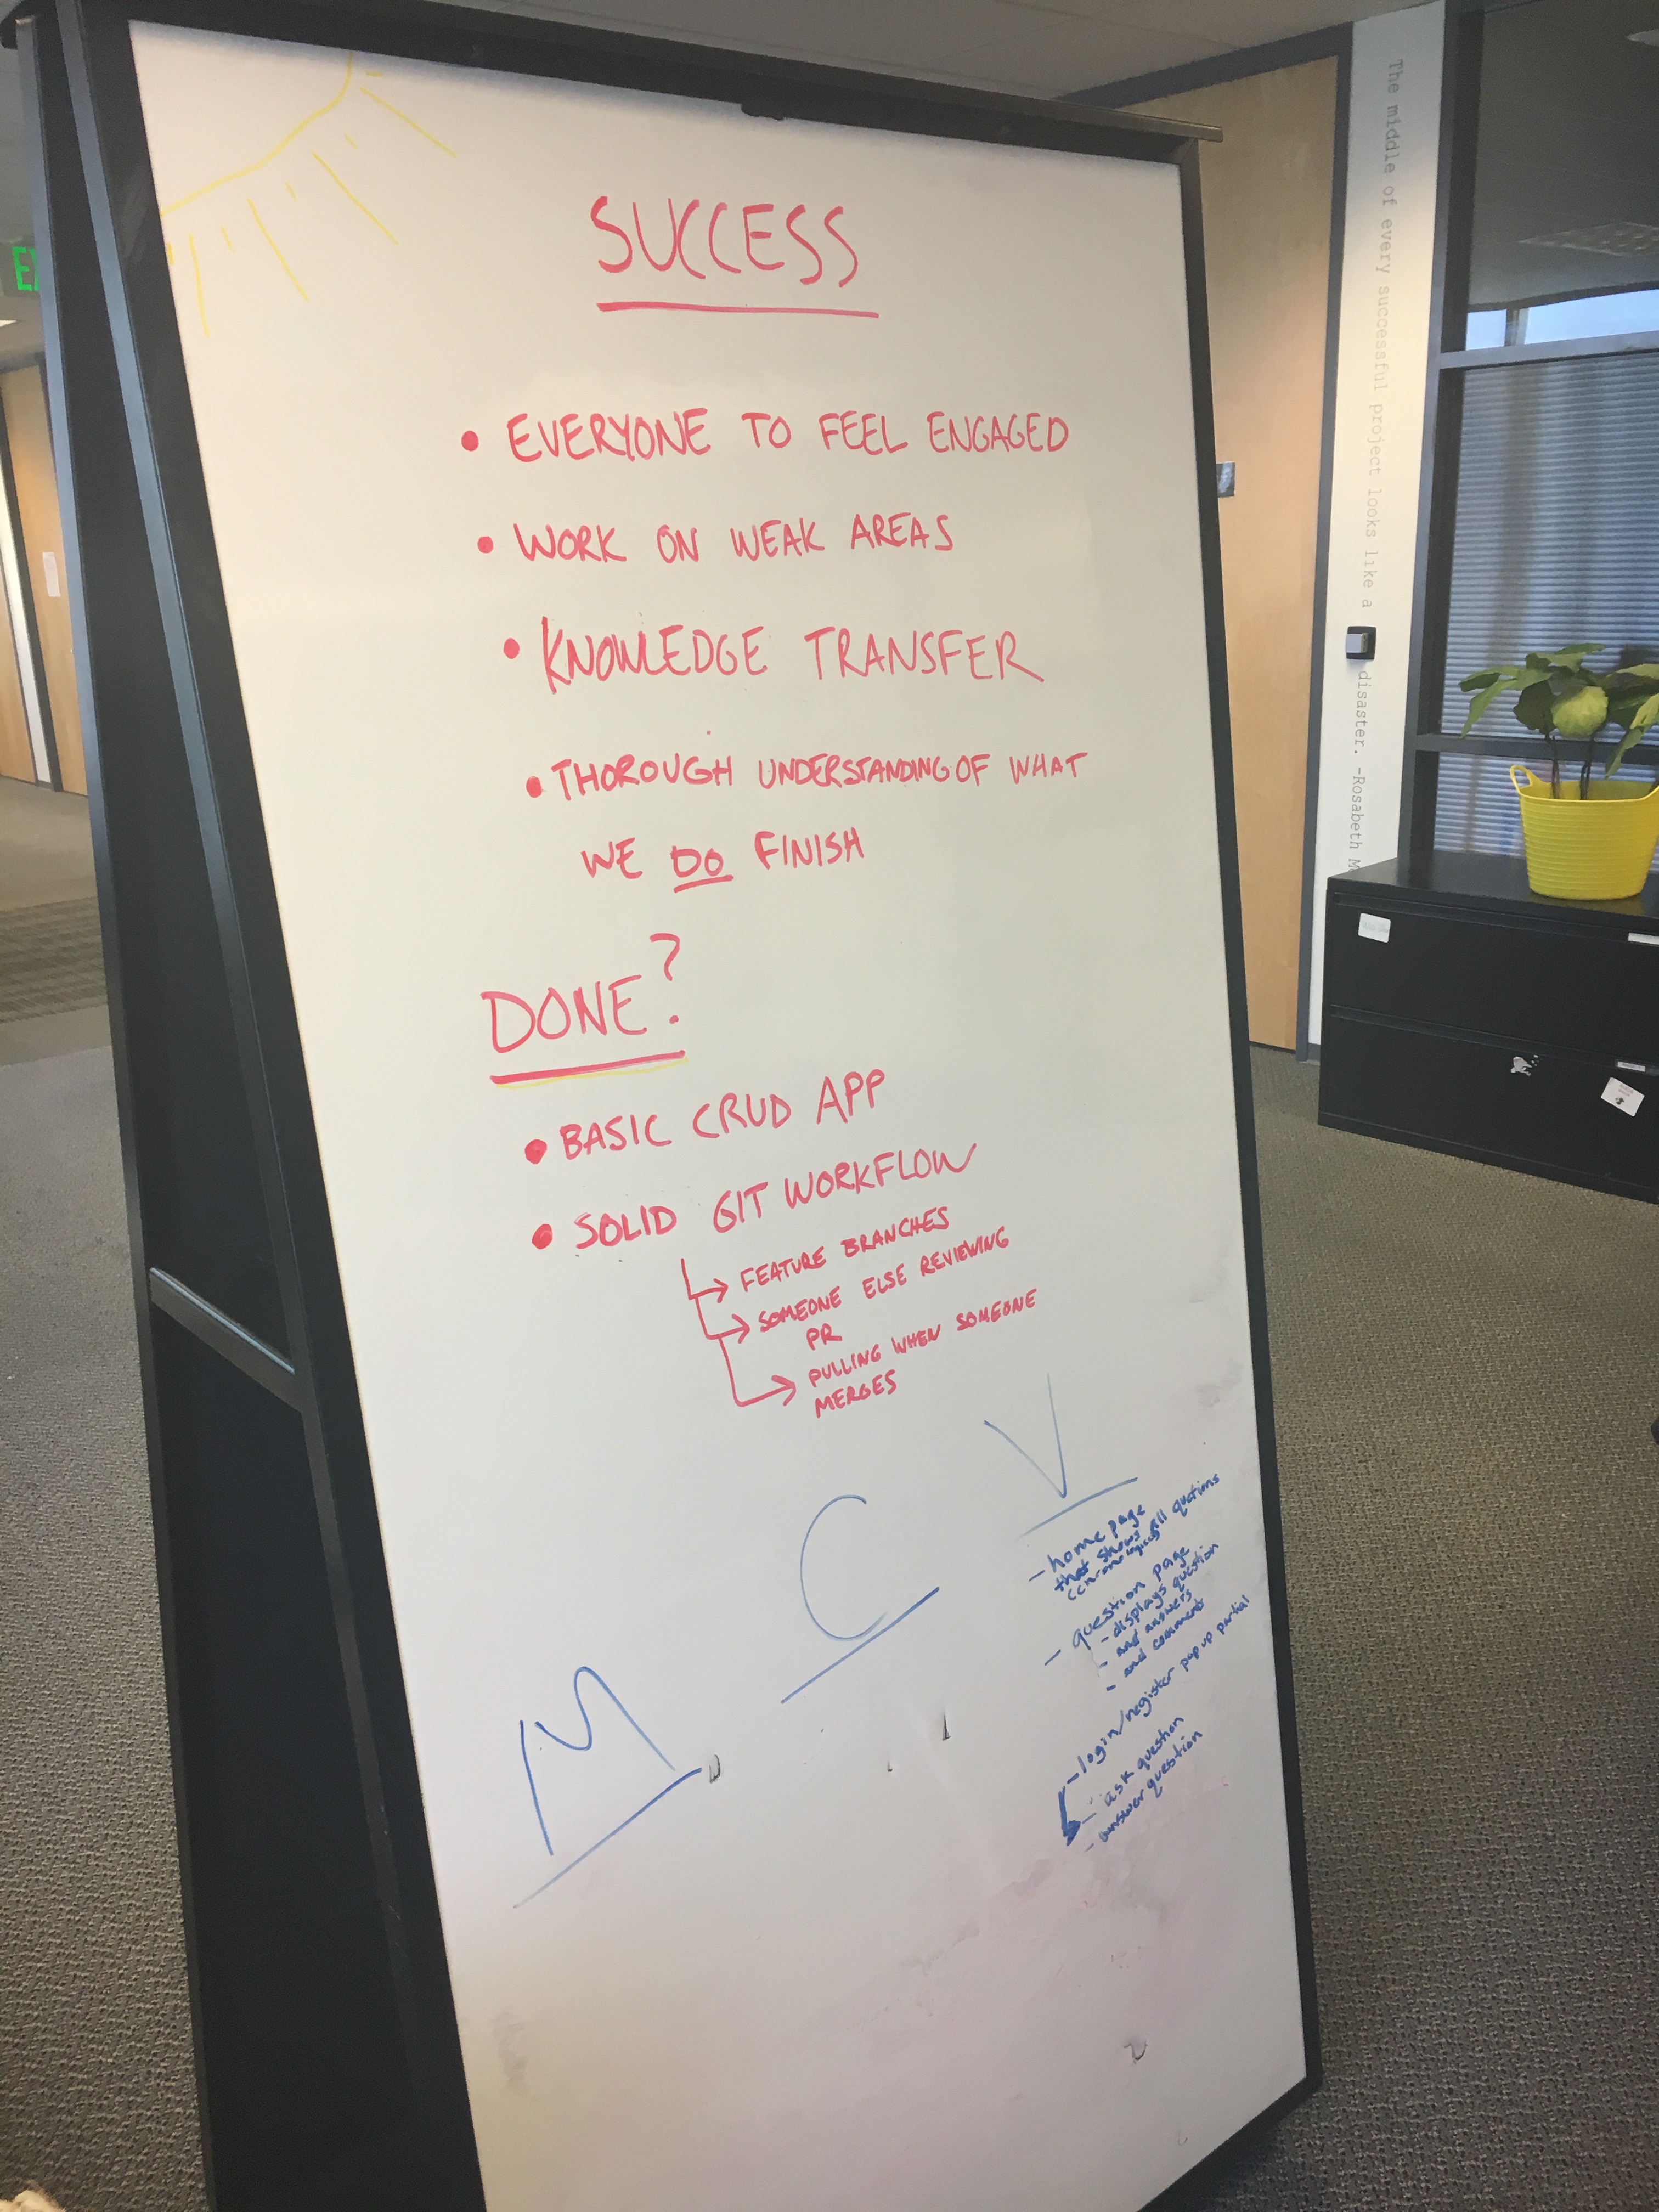 SUCCESS
• EVERYONE TO FEEL ENGAGED
• WORK ON WEAK AREAS
• KNOWLEDGE TRANSFER
• THOROUGH UNDERSTANDING OF WHAT
WE DO FINISH
DONE?
• BASIC CRUD APP
• SOLID GIT WORKFLOW
→ FEATURE BRANCHES
→ SOMEONE ELSE REVIEWING
PR
→ PULLING WHEN SOMEONE
MERGES
M
C
V
- home page
that shows all qustions
- question page
- displays question
- and answers
- and comments
- login/register pop up partial
- ask question
- answer question
The middle of every successful project looks like a disaster. -Rosabeth M